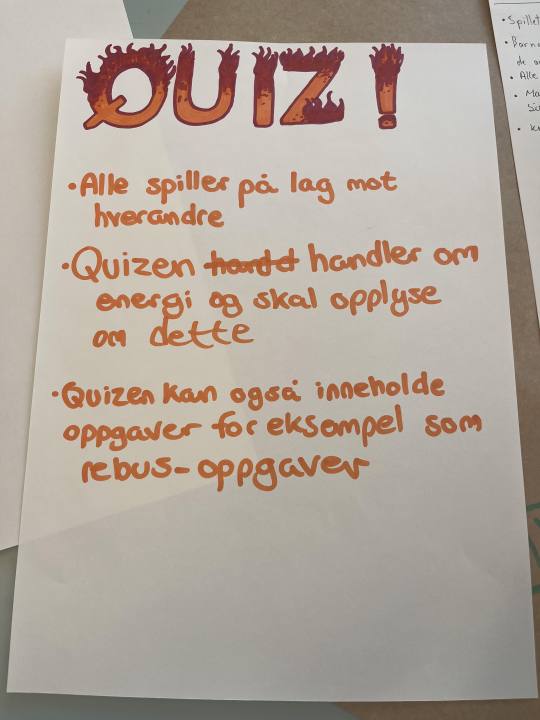 QUIZ!
•Alle spiller på lag mot
hverandre
•Quizen handler om
energi og skal opplyse
om dette
•Quizen kan også inneholde
oppgaver for eksempel som
rebus-oppgaver
•Spillet
•Barna
• Alle